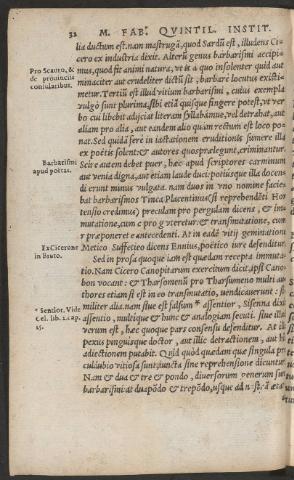 32 M. FAB. QVINTIL. INSTIT.
lia ductum est. nam mastrugã, quod Sardũ est, illudens Ci-
cero ex industria dixit. Alterũ genus barbarismi accipi-
Pro Scauro, &
de prouinciis
consularibus.
mus, quod fit animi natura, vt is a quo insolenter quid aut
minaciter aut crudeliter dictũ sit, barbare locutus existi-
metur. Tertiũ est illud vitium barbarismi, cuius exempla
vulgo sunt plurima, sibi etiã quisque fingere potest, vt ver
bo cui libebit adiiciat literam syllabamue, vel detrahat, aut
aliam pro alia, aut eandem alio quàm rectum est loco po-
nat. Sed quidã ferè in iactationem eruditionis sumere illa
ex poëtis solent: & autores quos prælegunt, criminantur.
Barbarismi
apud poëtas.
Scire autem debet puer, hæc apud scriptores carminum
aut venia digna, aut etiam laude duci: potiúsque illa docen
di erunt minus vulgata. nam duos in vno nomine facie-
bat barbarismos Tinca Placentinus (si reprehendẽti Hor
tensio credimus) preculam pro pergulam dicens, & im-
mutatione, cum c pro g vteretur: & transmutatione, cum
r præponeret e antecedenti. At in eadẽ vitij geminatione
Ex Cicerone
in Bruto.
Metico Suffetieo dicens Ennius, poëtico iure defenditur.
Sed in prosa quoque iam est quædam recepta immuta-
tio. Nam Cicero Canopitarum exercitum dicit. ipsi Cano-
bon vocant: & Tharsomenũ pro Tharsumeno multi au-
thores etiamsi est in eo transmutatio, uendicauerunt: si-
militer alia. nam siue est falsum * assentior, Sisenna dixit
* Sentior. Vide
Gel. lib. 2. cap.
25.
assentio, multique & hunc & analogiam secuti. siue illud
verum est, hæc quoque pars consensu defenditur. At ille
pexus pinguisque doctor, aut illic detractionem, aut hic
adiectionem putabit. Quid quòd quædam quæ singula pro
culdubio vitiosa sunt, iuncta sine reprehensione dicuntur.
Nam & dua & tre & pondo, diuersorum generum sunt
barbarismi: at duapõdo & trepõdo, usque ad nostrã æta-